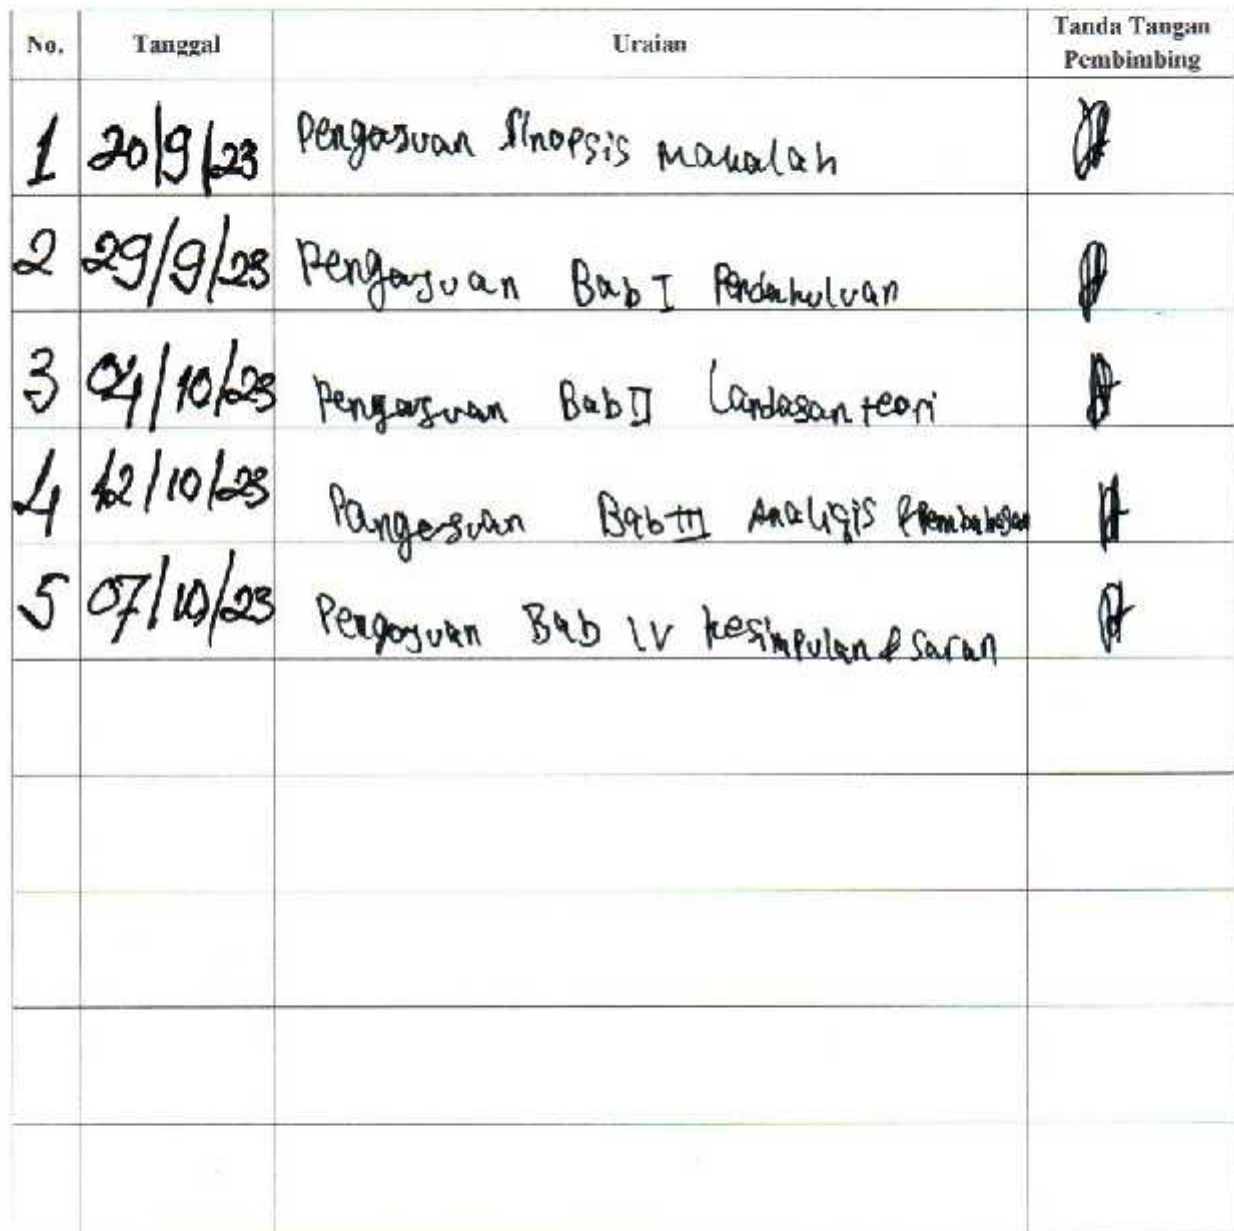 No. Tanggal Uraian Tanda Tangan Pembimbing
1 20/9/23 Pengajuan Sinopsis Makalah
2 29/9/23 Pengajuan Bab I Pendahuluan
3 04/10/23 Pengajuan Bab II Landasan teori
4 12/10/23 Pangejuan Bab III Analisis & Pembahasan
5 07/10/23 Pengajuan Bab IV kesimpulan & saran